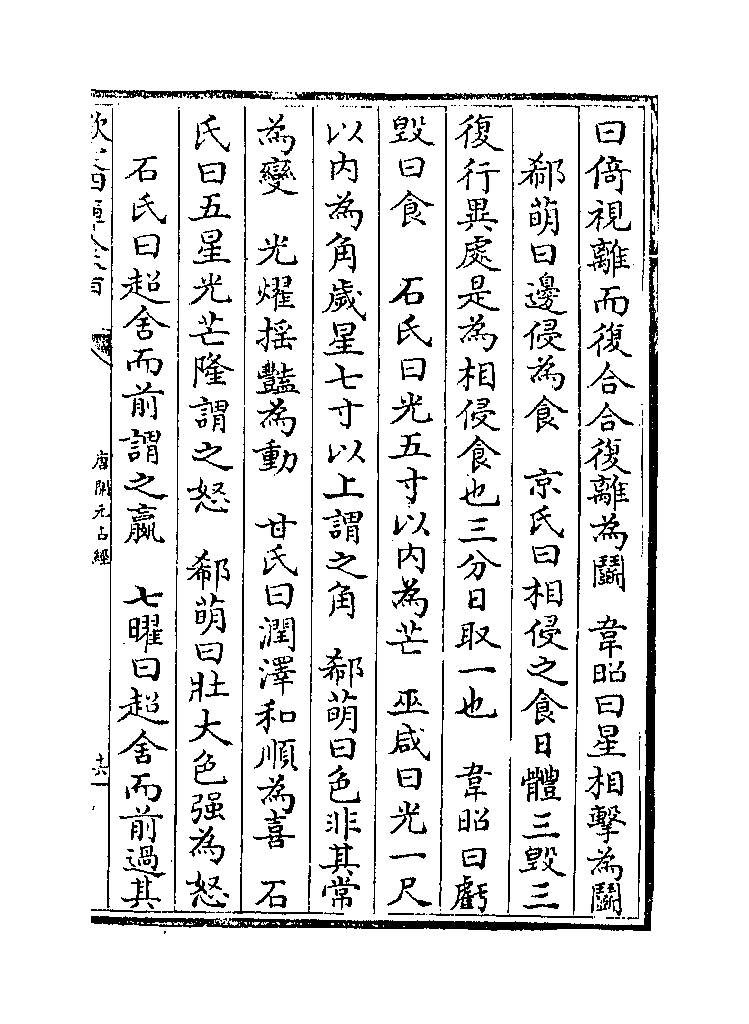 曰倚視離而復合合復離為鬭　韋昭曰星相擊為鬭
郗萌曰邊侵為食　京氏曰相侵之食日體三毀三
復行異處是為相侵食也三分日取一也　韋昭曰虧
毀曰食　石氏曰光五寸以内為芒　巫咸曰光一尺
以内為角歲星七寸以上謂之角　郗萌曰色非其常
為變　光耀揺豔為動　甘氏曰潤澤和順為喜　石
氏曰五星光芒隆謂之怒　郗萌曰壮大色强為怒
石氏曰超舍而前謂之贏　七曜曰超舍而前過其
唐開元占經